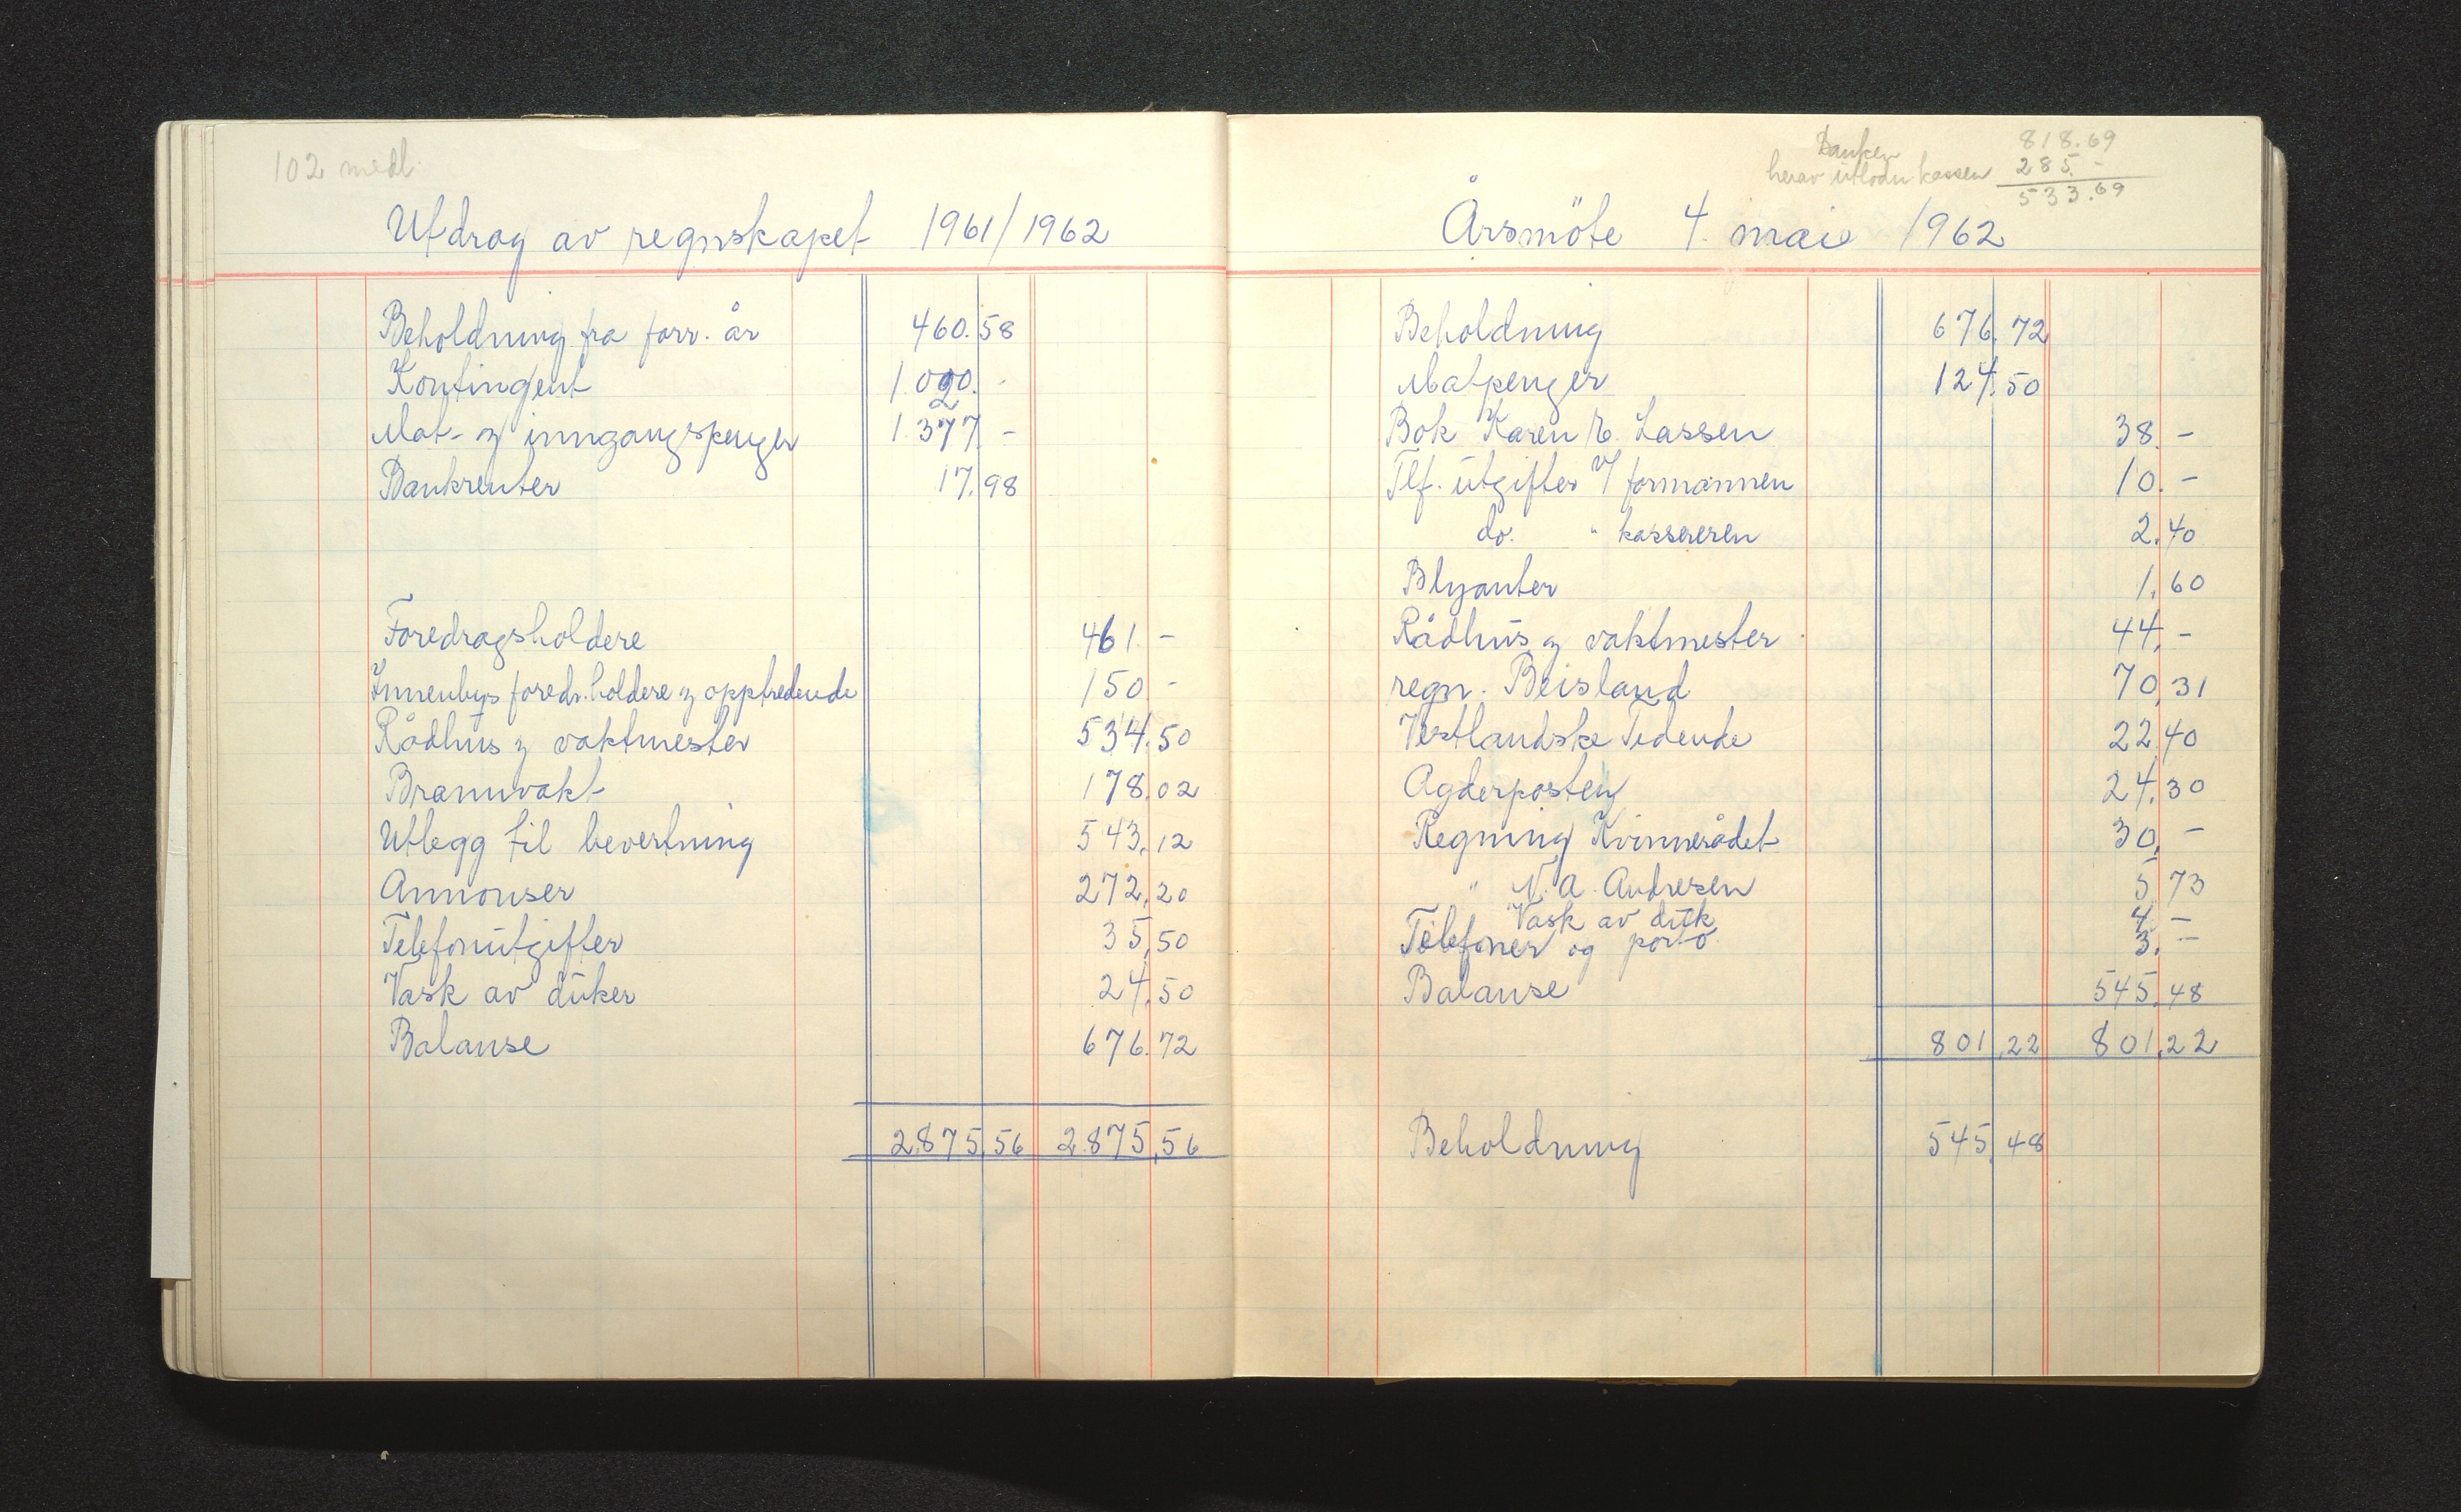 102 medl.
Utdrag av regnskapet 1961/1962
Beholdning fra forr. år 460.58
Kontingent 1.020.-
Mat- og inngangspenger 1.377.-
Bankrenter 17.98
Foredragsholdere 461.-
Innenbys foredr.holdere og opptredende 150.-
Rådhus og vaktmester 534.50
Brannvakt 178.02
Utlegg til bevertning 543.12
Annonser 272.20
Telefonutgifter 35.50
Vask av duker 24.50
Balanse 676.72
2.875.56 2.875.56
Banken 818.69
herav utlodn.kassen 285.-
533.69
Årsmöte 4. mai 1962
Beholdning 676.72
Matpenger 124.50
Bok Karen G. Lassen 38.-
Tlf. utgifter v/ formannen 10.-
do. " kassereren 2.40
Blyanter 1.60
Rådhus og vaktmester 44.-
regn. Beisland 70.31
Vestlandske Tidende 22.40
Agderposten 24.30
Regning Kvinnerådet 30.-
" N. A. Andresen 5.73
Vask av duk 4.-
Telefoner og porto 3.-
Balanse 545.48
801.22 801.22
Beholdning 545.48